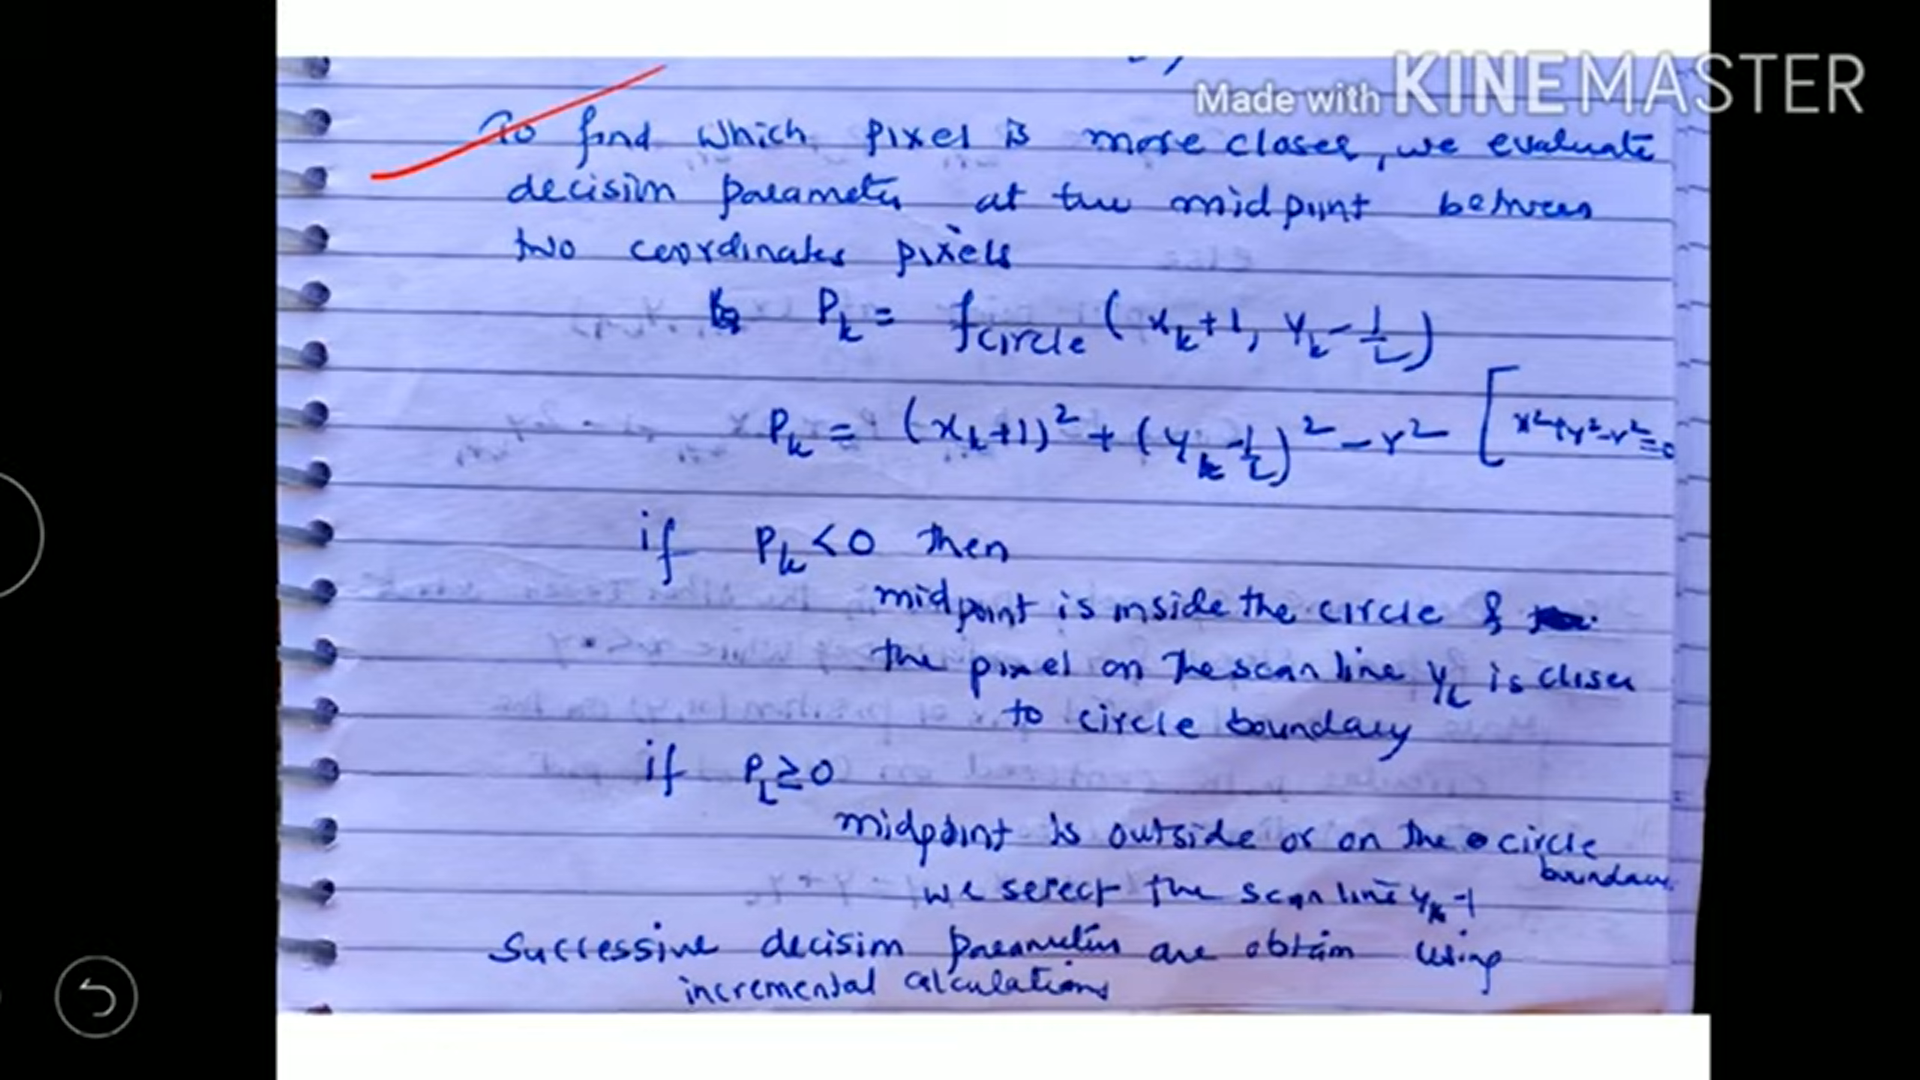 Made with KINEMASTER
To find which pixel is more closer, we evaluate
decision parameter at the midpoint between
two coordinates pixels
Pk = fcircle (xk+1, yk-1/2)
Pk = (xk+1)² + (yk-1/2)² - r² [x²+y²-r²=0
if Pk<0 then
midpoint is inside the circle &
the pixel on the scan line yk is closer
to circle boundary
if Pk≥0
midpoint is outside or on the circle
boundary
we select the scan line yk-1
Successive decision parameters are obtain using
incremental calculations